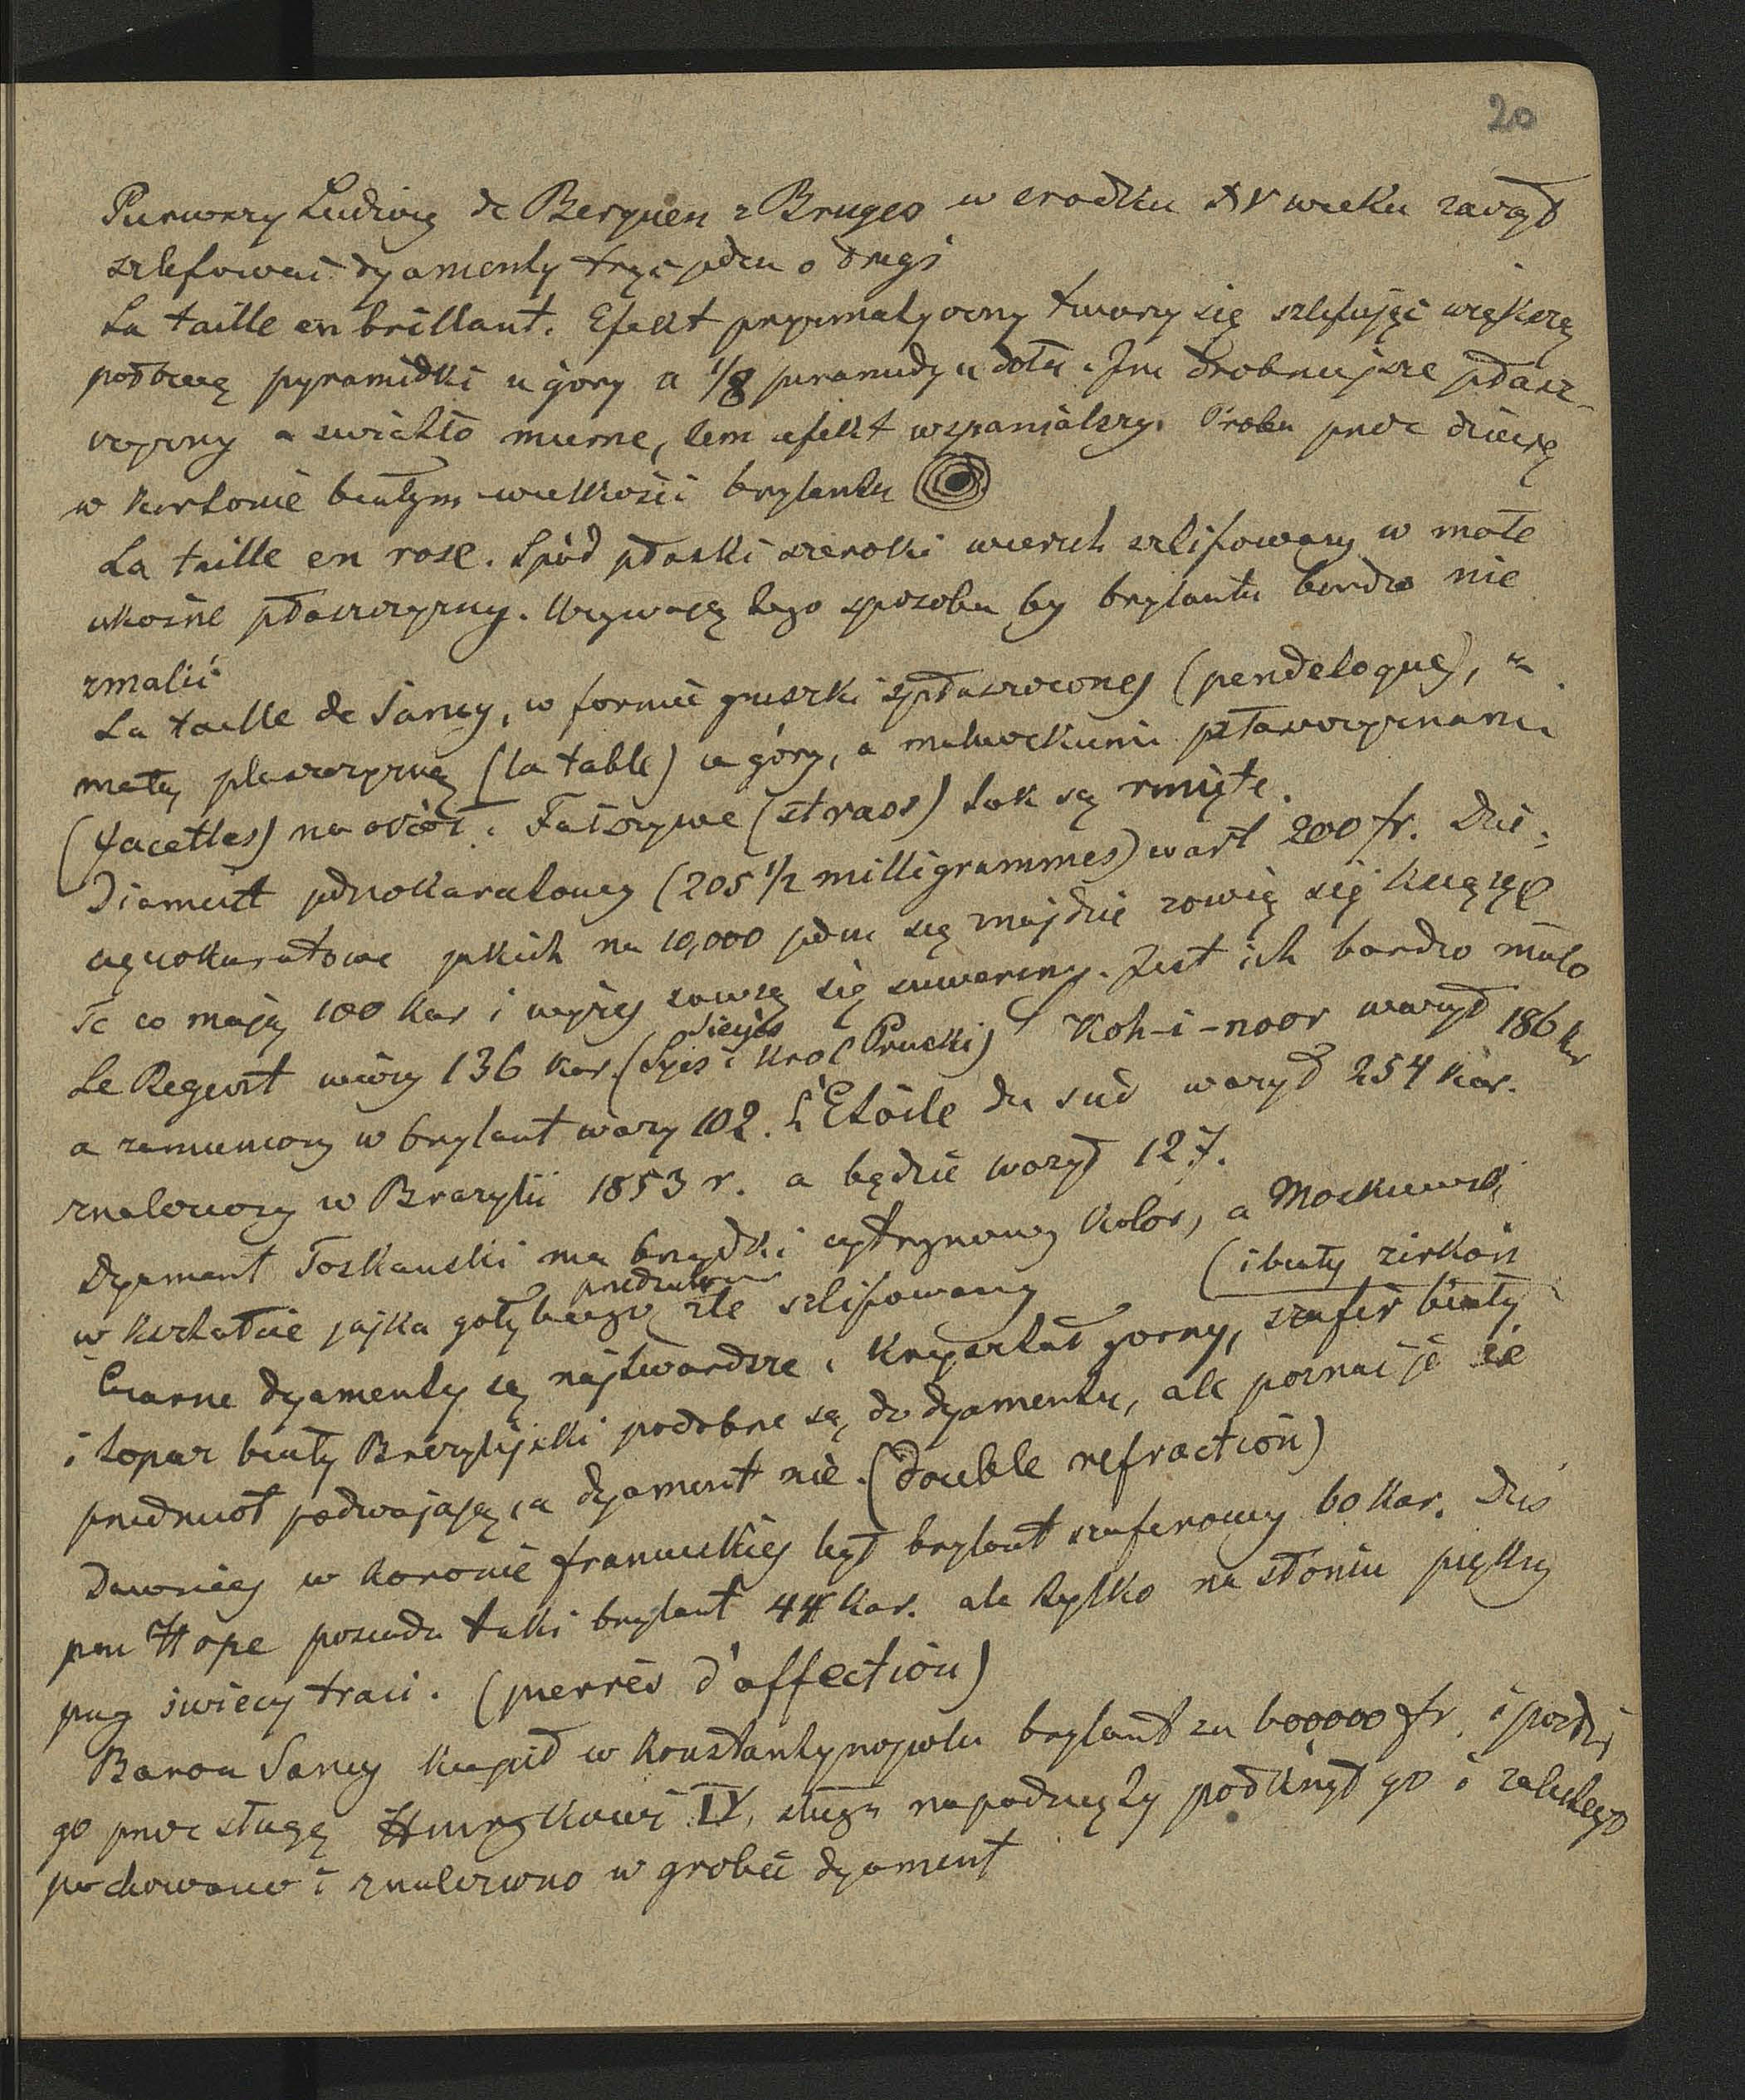 20
Pierwszy Ludwig de Berquen z Bruges w srodku XV wieku zaczął
szlifować dyamenty trąc jeden o drugi
La taille en brillant. Efekt pryzmatyczny tworzy się szlifując większą
połowę pyramidki u góry a 1/8 piramidy u dołu. Im drobniejsze płasz-
czyzny a światło mierne, tem efekt wspanialszy. Próba przez dziurę
w kartonie białym wielkości brylantu
La taille en rose. Spód płaski szeroki wierzch szlifowany w małe
ukośne płaszczyzny. Używają tego sposobu by brylantu bardzo nie
zmalić
La taille de Sancy, w formie gruszki spłaszczonej (pendeloque), z
małą płaszczyzną (la table) u góry, a maluczkiemi płaszczyznami
(facettes) na okół. Fałszywe (strass) tak są rznięte.
Diament jednokaratowy (205 1/2 milligrammes) wart 200 fr. Dzie-
cokaratowe jakich na 10,000 jeden się znajdzie zowią się książęce
Te co mają 100 kar i wyżej zowią się suwereny. Jest ich bardzo mało
Le Regent waży 136 kar. (Siejes
Syes i Krol Pruski) Koh-i-noor ważył 186 kar
a zamieniony w brylant waży 102. L'Etoile du sud ważył 254 kar.
znaleziony w Brazylii 1853 r. a będzie ważył 127.
Dyament Toskański ma brzydki cytrynowy kolor, a Moskiewski
w kształcie jajka gołębiego źle szlifowany (i biały zirkon
Czarne dyamenty są najtwardsze. Kryształ gorny, szafir biały
i topaz biały Brazylijski podobne są do dyamentu, ale poznac je że
przedmiot podwajają, a dyament nie. (double refraction)
Dawniej w koronie francuskiej był brylant szafirowy 60 kar. Dziś
pan Hope posiada taki brylant 44 kar. ale tylko na słońcu piękny
przy świecy traci. (pierres d'affection)
Baron Sancy kupił w Konstantynopolu brylant za 600000 fr. i posłał
go przez sługę Henrykowi IV, sługa napadnięty połknął go i zabitego
pochowano i znaleziono w grobie dyament